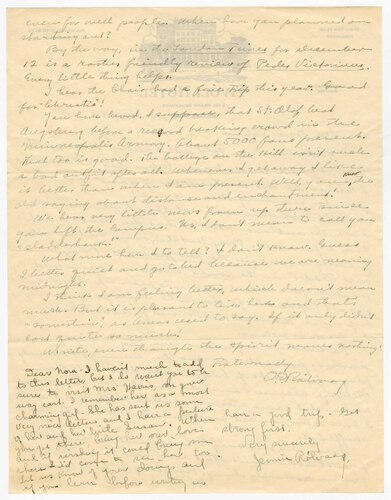 even for well people. When have you planned on
starting out?
By the way, in the London Times for December
12 is a rather friendly review of Peder Victorious.
Every little thing helps.
I hear the Choir had a fine trip this year. Good
for Christie!
You have heard, I suppose, that St. Olaf beat
Augsburg before a record breaking crowd in the
Minneapolis Armory. About 5000 fans present.
That too is good. The college on the Hill isn't such
a bad outfit after all. Whenever I get away I like
it better than when I am present. Well,
old saying about distance and enchantment!
We hear very little news from up there since
you left the Campus. No, I don't mean to call you
a "
What more have I to tell? I don't know. Guess
I better quit and go to bed because we are nearing
midnight.
I think I am feeling better, which doesn't mean
much. But it is pleasant to and that's
"something", as used to say. If it only didn't
cost quite so much!
Write, even though the spirit moves not
Fraternally
Dear Nora: I haven't much to add
to this letter, but I do want you to be
sure to visit Mrs on your
way east. I remember her as a most
charming girl. She has sent us some
very nice letters and I have a picture
of her and her little Susan. When
you get there, give her our love
and by wishing it could bring me
where I'd come to see her too.
Let us know of your doings and
if you leave before writing us
have a good trip. Get
strong first.
Very sincerely
Jennie Rolvaag